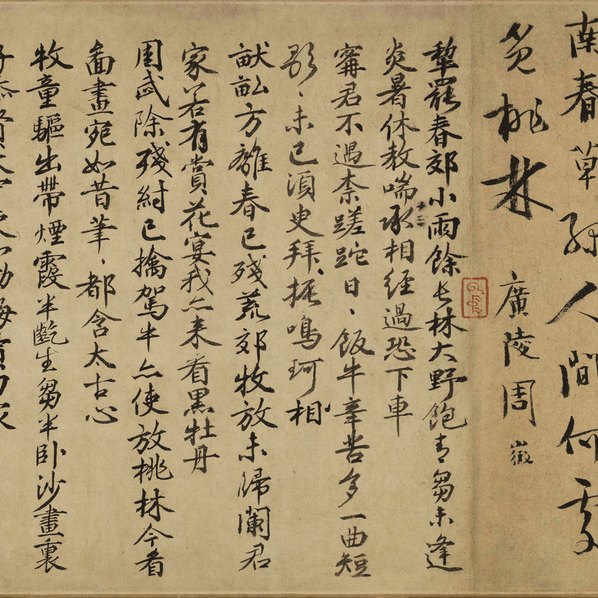 南春草緑人間何處
覓桃林
廣陵周
犂罷春郊小雨餘長林大野飽青芻未逢
炎暑休教喘丞相經過恐下車
甯君不遇柰蹉跎日〻飯牛辛苦多一曲短
歌〻未已須臾拜相振鳴珂
畎畝方離春已残荒郊牧放未歸闌君
家若有賞花宴我亦来看黒牡丹
周武除殘紂已擒駕牛亦使放桃林今看
啚畫宛如昔筆〻都含太古心
牧童驅出帶煙霞半齕生芻半卧沙畫裏